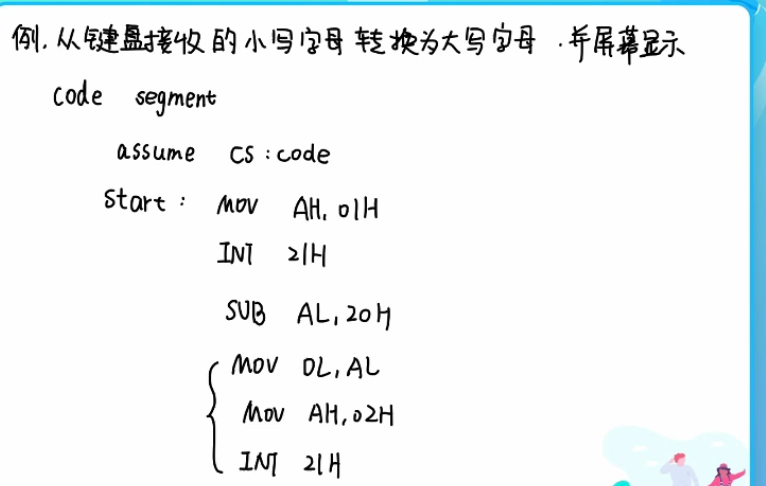 例. 从键盘接收的小写字母转换为大写字母. 并屏幕显示
code segment
assume CS:code
start: MOV AH, 01H
INT 21H
SUB AL, 20H
MOV DL, AL
MOV AH, 02H
INT 21H